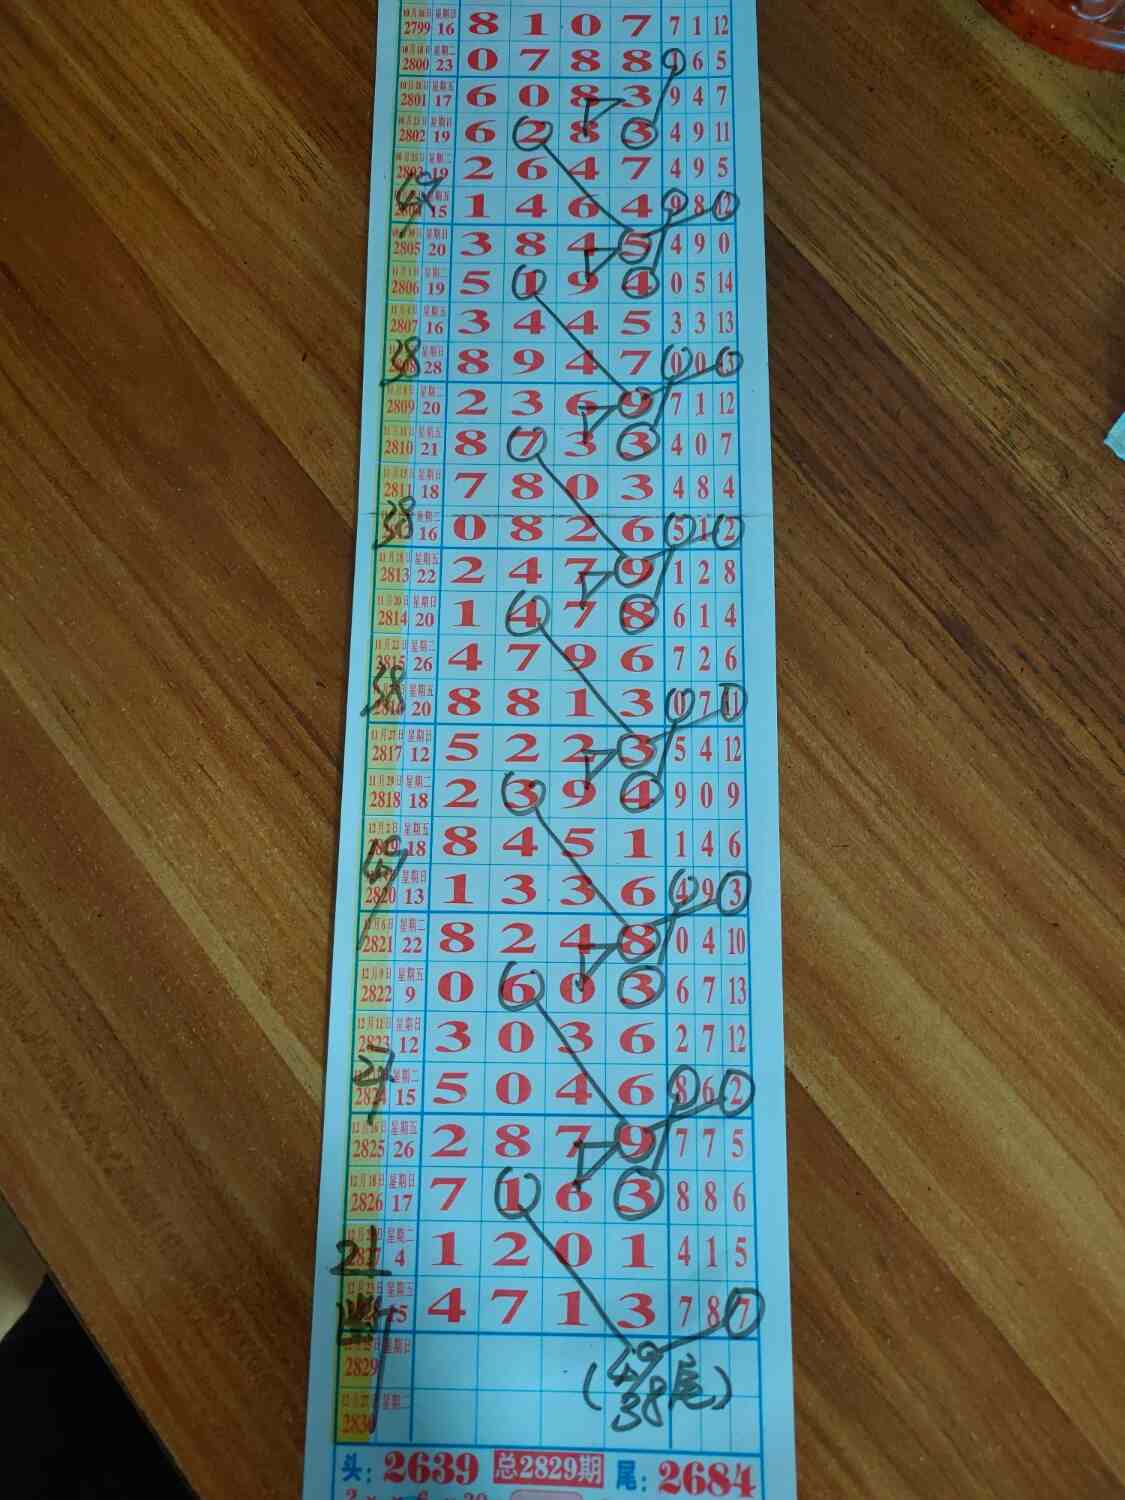 2799 星期日 16 8 1 0 7 7 1 12
2800 星期二 23 0 7 8 8 9 6 5
2801 星期五 17 6 0 8 3 9 4 7
2802 星期日 19 6 2 8 3 4 9 11
星期二 19 2 6 4 7 4 9 5
星期五 15 1 4 6 4 9 8 12
2805 星期日 20 3 8 4 5 4 9 0
2806 星期二 19 5 1 9 4 0 5 14
2807 星期五 16 3 4 4 5 3 3 13
38 星期日 28 8 9 4 7 0 0
2809 星期二 20 2 3 6 9 7 1 12
2810 星期五 21 8 7 3 3 4 0 7
2811 星期日 18 7 8 0 3 4 8 4
38 星期二 16 0 8 2 6 5 1 2
2813 星期五 22 2 4 7 9 1 2 8
11月20日 2814 星期日 20 1 4 7 8 6 1 4
2815 星期二 26 4 7 9 6 7 2 6
38 星期五 20 8 8 1 3 0 7 11
11月27日 2817 星期日 12 5 2 2 3 5 4 12
11月29日 2818 星期二 18 2 3 9 4 9 0 9
12月2日 星期五 18 8 4 5 1 1 4 6
2820 星期日 13 1 3 3 6 4 9 3
12月6日 2821 星期二 22 8 2 4 8 0 4 10
12月9日 2822 星期五 9 0 6 0 3 6 7 13
12月11日 2823 星期日 12 3 0 3 6 2 7 12
2824 星期二 15 5 0 4 6 8 6 2
12月16日 2825 星期五 26 2 8 7 9 7 7 5
12月18日 2826 星期日 17 7 1 6 3 8 8 6
星期二 4 1 2 0 1 4 1 5
星期五 15 4 7 1 3 7 8 7
2829 星期日 49
2830 星期二 (38尾)
头: 2639 总2829期 尾: 2684